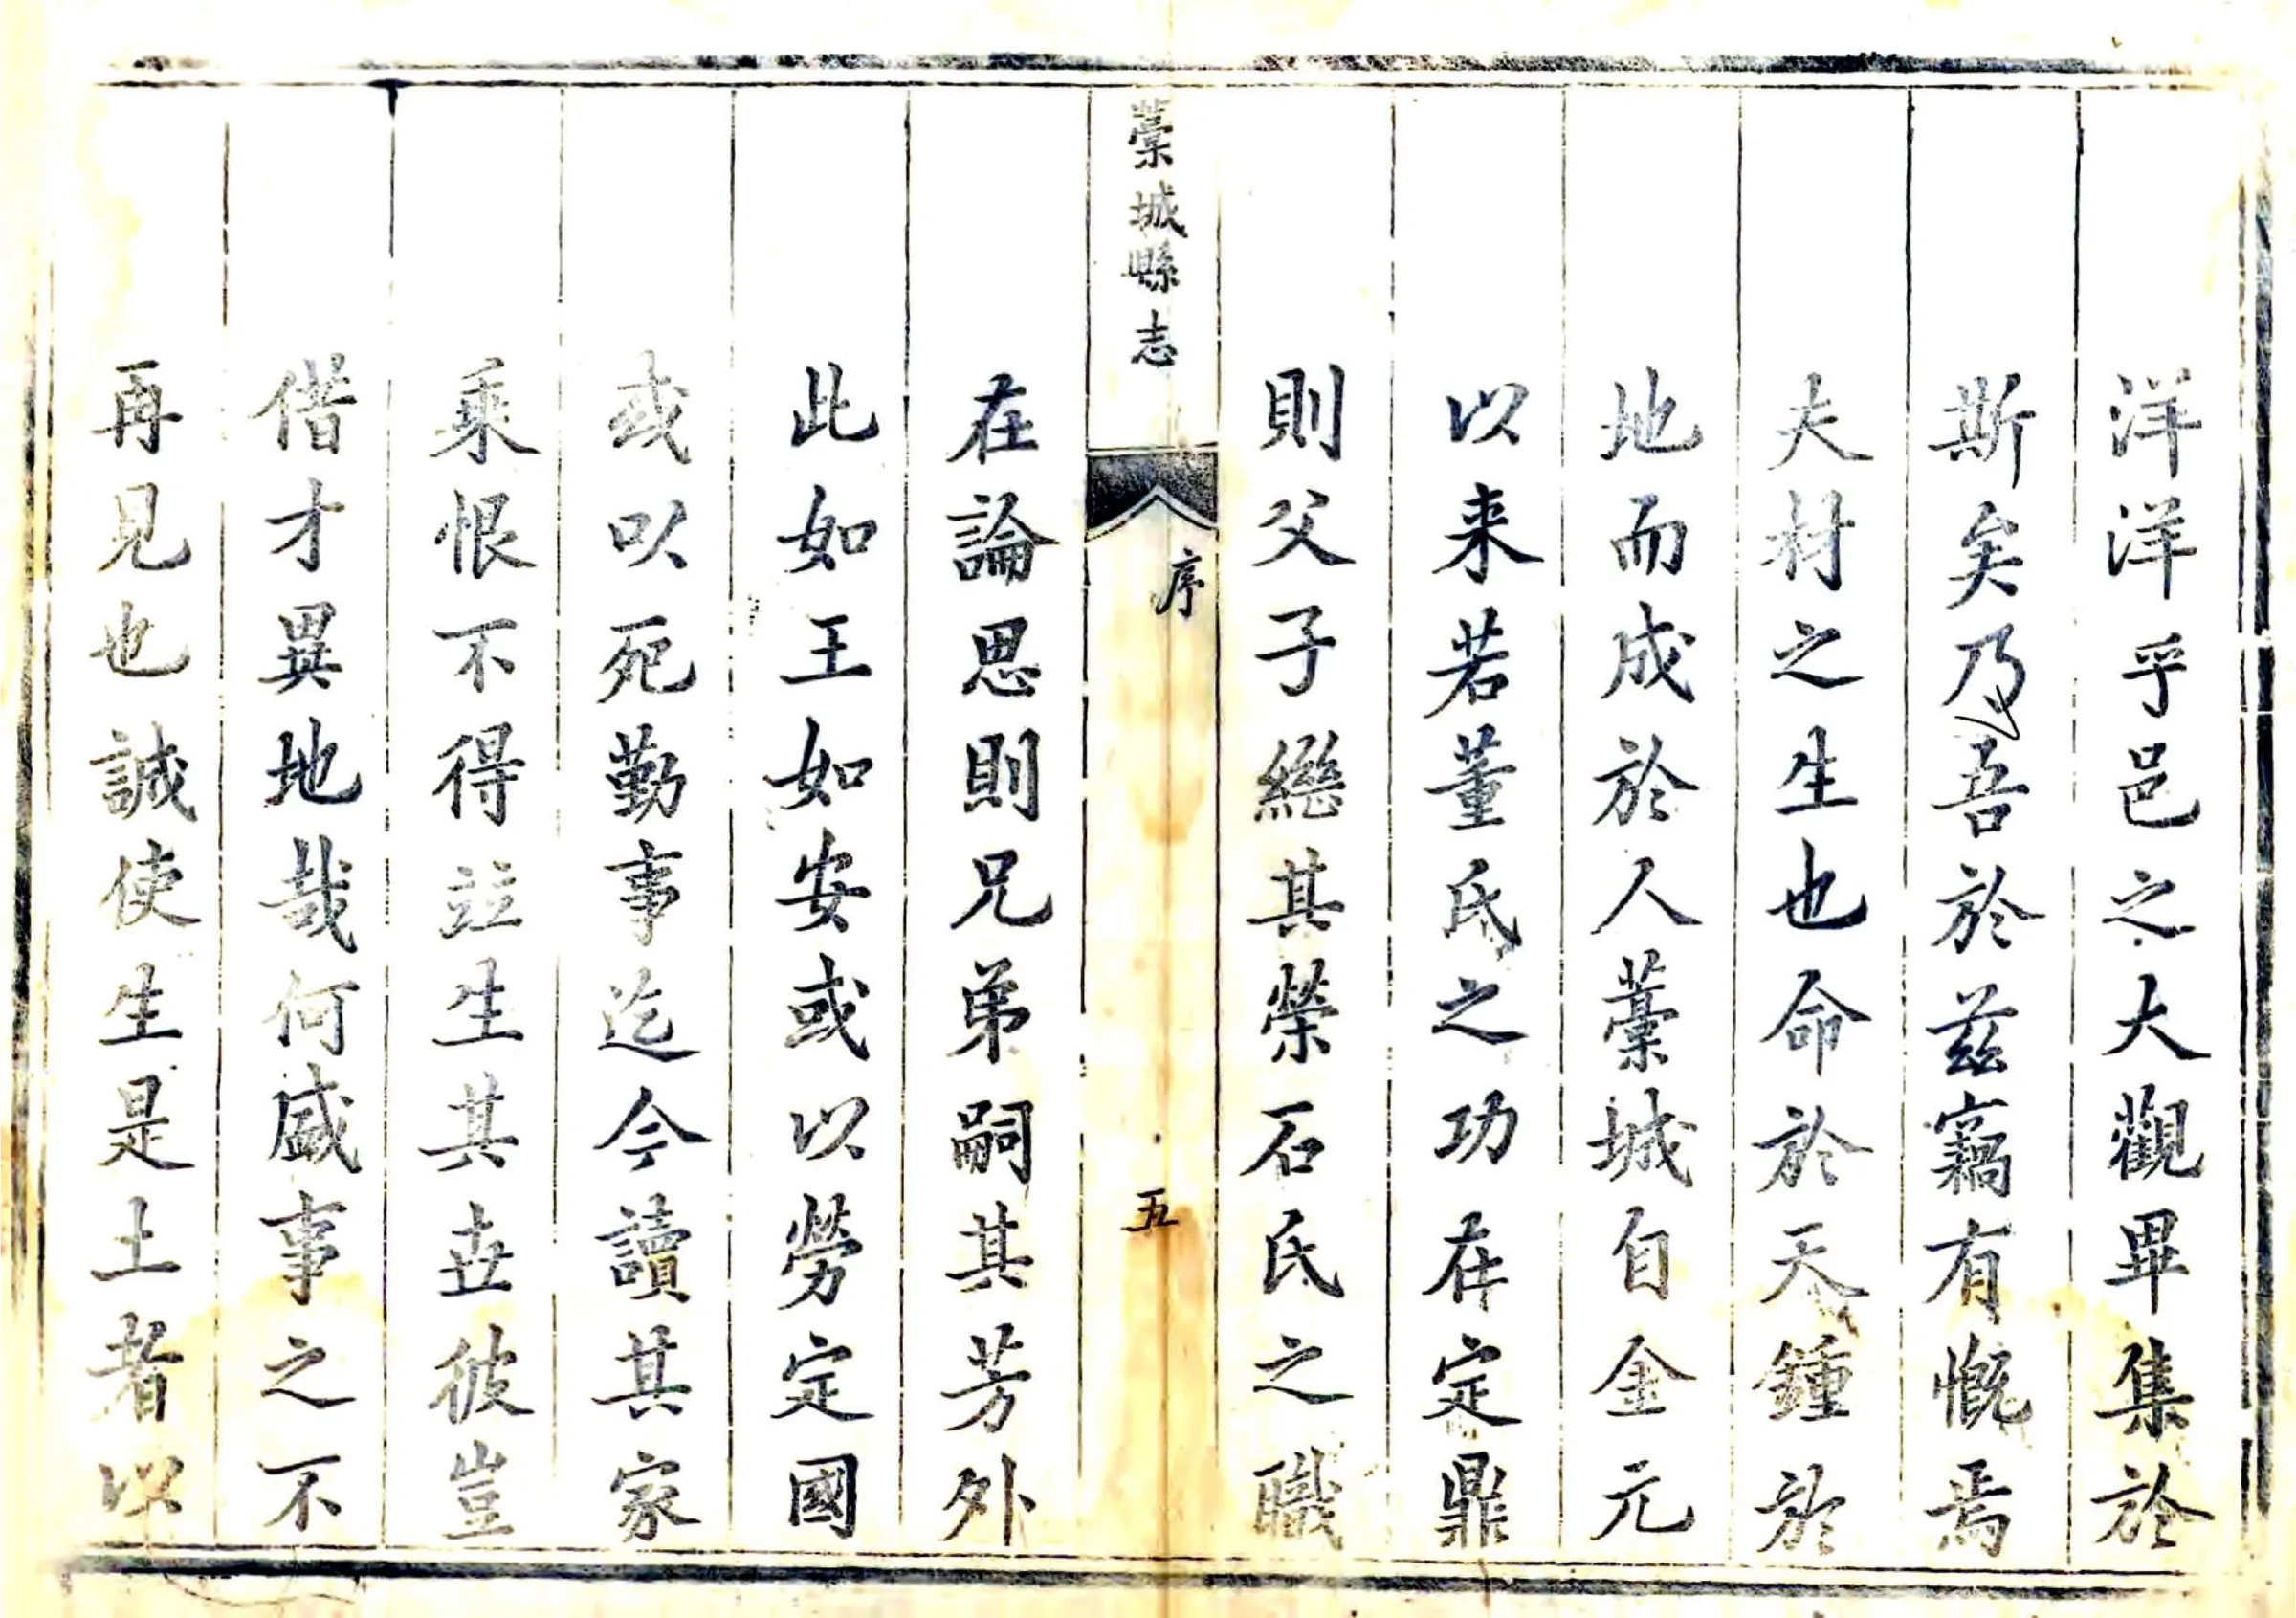 洋洋乎邑之大觀畢集於
斯矣乃吾於茲竊有慨焉
夫材之生也命於天鍾於
地而成於人藁城自金元
以来若董氏之功在定鼎
則父子繼其榮石氏之職
藁城縣志
序
五
在論思則兄弟嗣其芳外
此如王如安或以勞定國
或以死勤事迄今讀其家
乘恨不得竝生其壵彼豈
借才異地哉何盛事之不
再見也誠使生是土者以